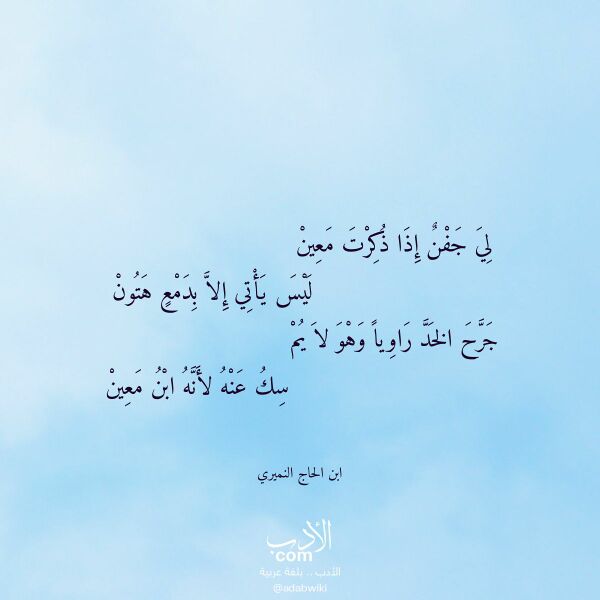 لِيَ جَفْنٌ إِذَا ذُكِرْتَ مَعِينْ
لَيْسَ يَأْتِي إِلاَّ بِدَمْعٍ هَتُونْ
جَرَّحَ الخَدَّ رَاوِياً وَهْوَ لاَ يُمْ
سِكُ عَنْهُ لأَنَّهُ ابْنُ مَعِينْ
ابن الحاج النميري
الأدب
com
الأدب .. بلغة عربية
@adabwiki